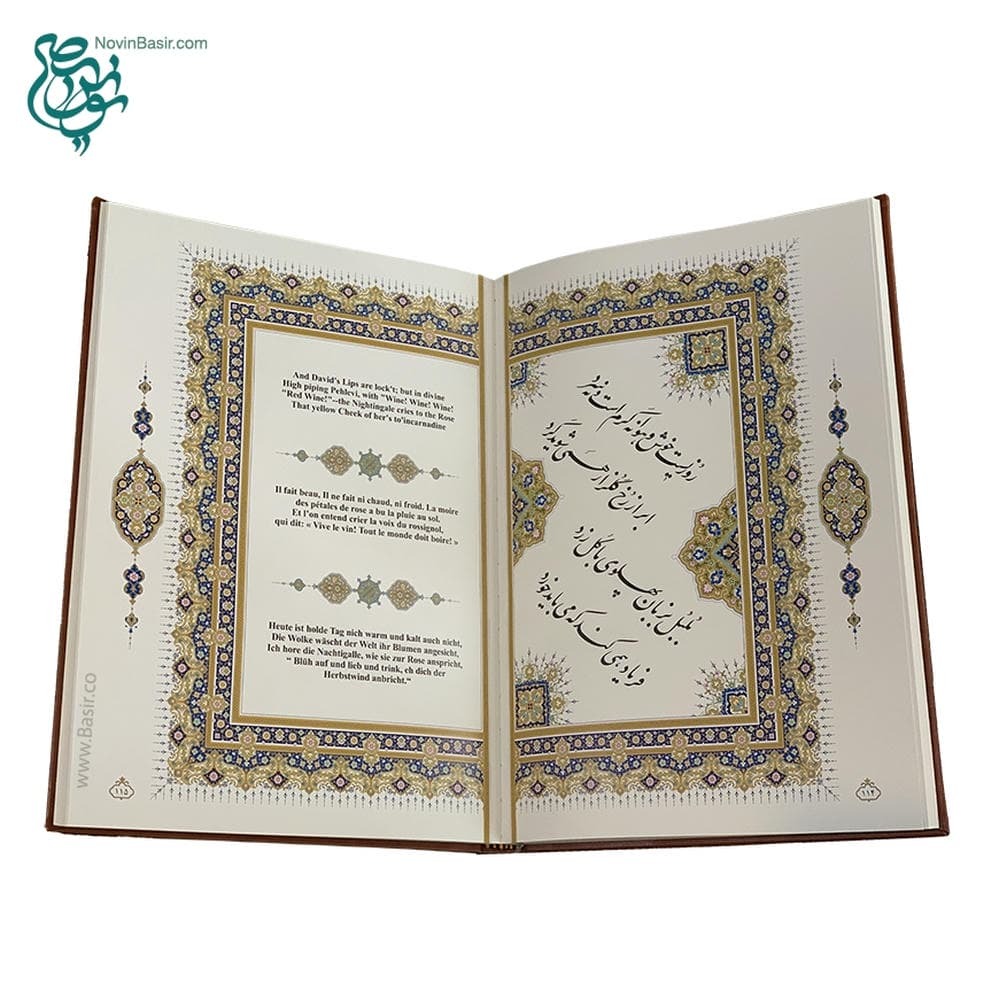 NovinBasir.com
روزیست خوش و هوا نه گرم است و نه سرد
ابر از رخ گلزار همی شوید گرد
بلبل بزبان پهلوی با گل زرد
فریاد همی کند که می باید خورد
۱۱۴
And David's Lips are lock't; but in divine
High piping Pehlevi, with "Wine! Wine! Wine!
"Red Wine!"--the Nightingale cries to the Rose
That yellow Cheek of her's to'incarnadine
Il fait beau, Il ne fait ni chaud, ni froid. La moire
des pétales de rose a bu la pluie au sol.
Et l'on entend crier la voix du rossignol,
qui dit: « Vive le vin! Tout le monde doit boire! »
Heute ist holde Tag nich warm und kalt auch nicht,
Die Wolke wäscht der Welt ihr Blumen angesicht,
Ich hore die Nachtigalle, wie sie zur Rose anspricht,
“ Blüh auf und lieb und trink, eh dich der
Herbstwind anbricht.“
۱۱۵
www.Basir.co